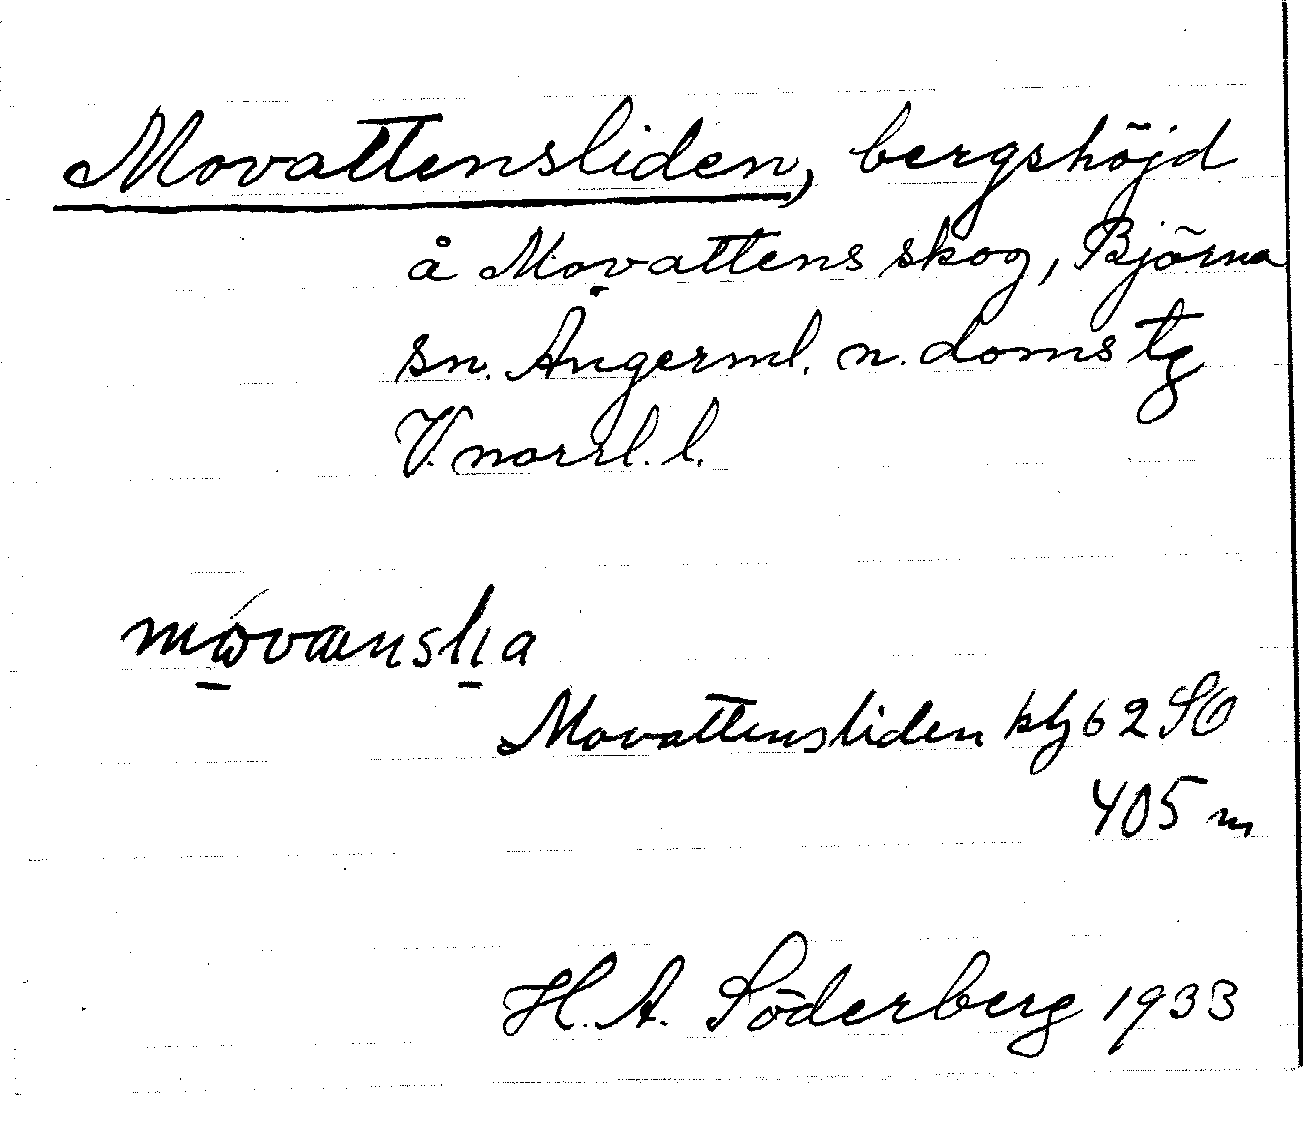 Movattensliden, bergshöjd
å Movattens skog, Björna
sn. Ångerml. n. doms tg
V. norrl. l.
Movattensliden kbl 62 SO
405 m
H. A. Söderberg 1933